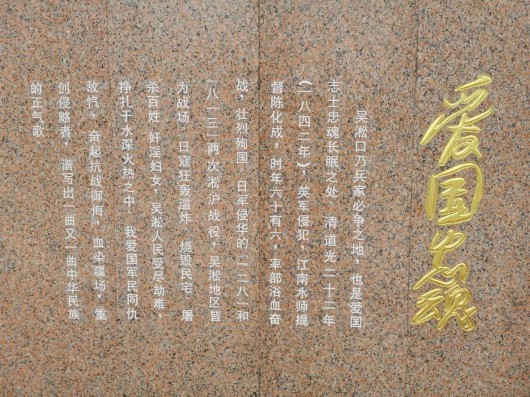 爱国忠魂
吴淞口乃兵家必争之地，也是爱国
志士忠魂长眠之处 清道光二十二年
(一八四二年)，英军侵犯，江南水师提
督陈化成，时年六十有六，率部浴血奋
战，壮烈殉国 日军侵华的“一二八”和
“八一三”两次淞沪战役，吴淞地区皆
为战场 日寇狂轰滥炸 烧毁民宅 屠
杀百姓 奸淫妇女，吴淞人民受尽劫难，
挣扎于水深火热之中 我爱国军民同仇
敌忾，奋起抗战御侮，血染疆场，重
创侵略者，谱写出一曲又一曲中华民族
的正气歌